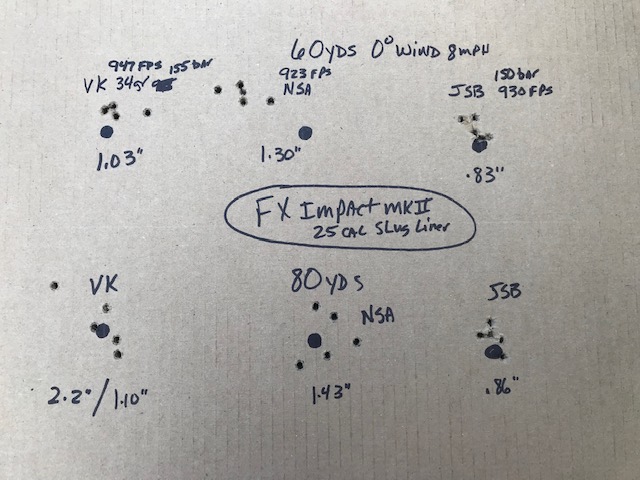 60YDS 0° WIND 8MPH
947 FPS 155 bar
VK 34gr
923 FPS
NSA
150 bar
JSB 930 FPS
1.03"
1.30"
.83"
FX ImpAct MKII
25 CAL Slug Liner
VK
80YDS
NSA
JSB
2.2"/1.10"
1.43"
.86"